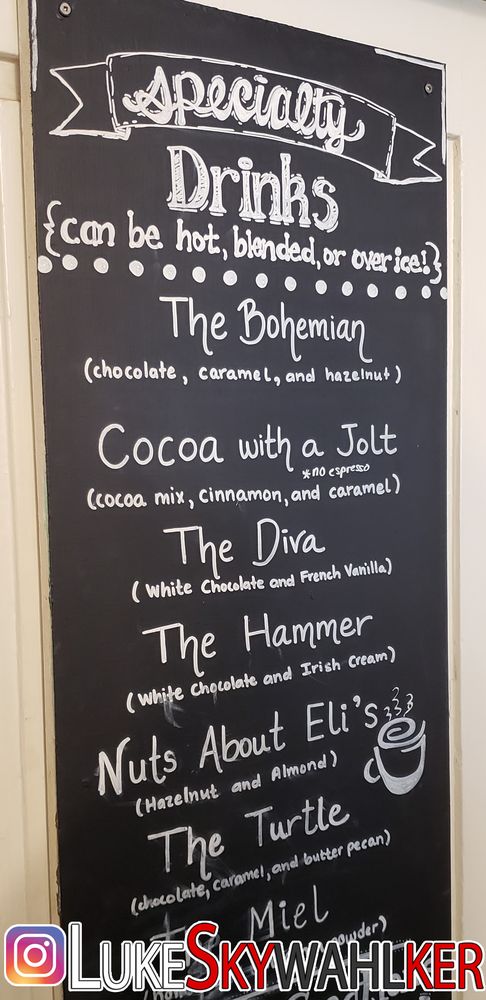 Specialty
Drinks
{can be hot, blended, or over ice!}
The Bohemian
(chocolate, caramel, and hazelnut)
Cocoa with a Jolt
*no espresso
(cocoa mix, cinnamon, and caramel)
The Diva
(White Chocolate and French Vanilla)
The Hammer
(White Chocolate and Irish Cream)
Nuts About Eli's
(Hazelnut and Almond)
The Turtle
(chocolate, caramel, and butter pecan)
Miel
LUKESKYWAHLKER